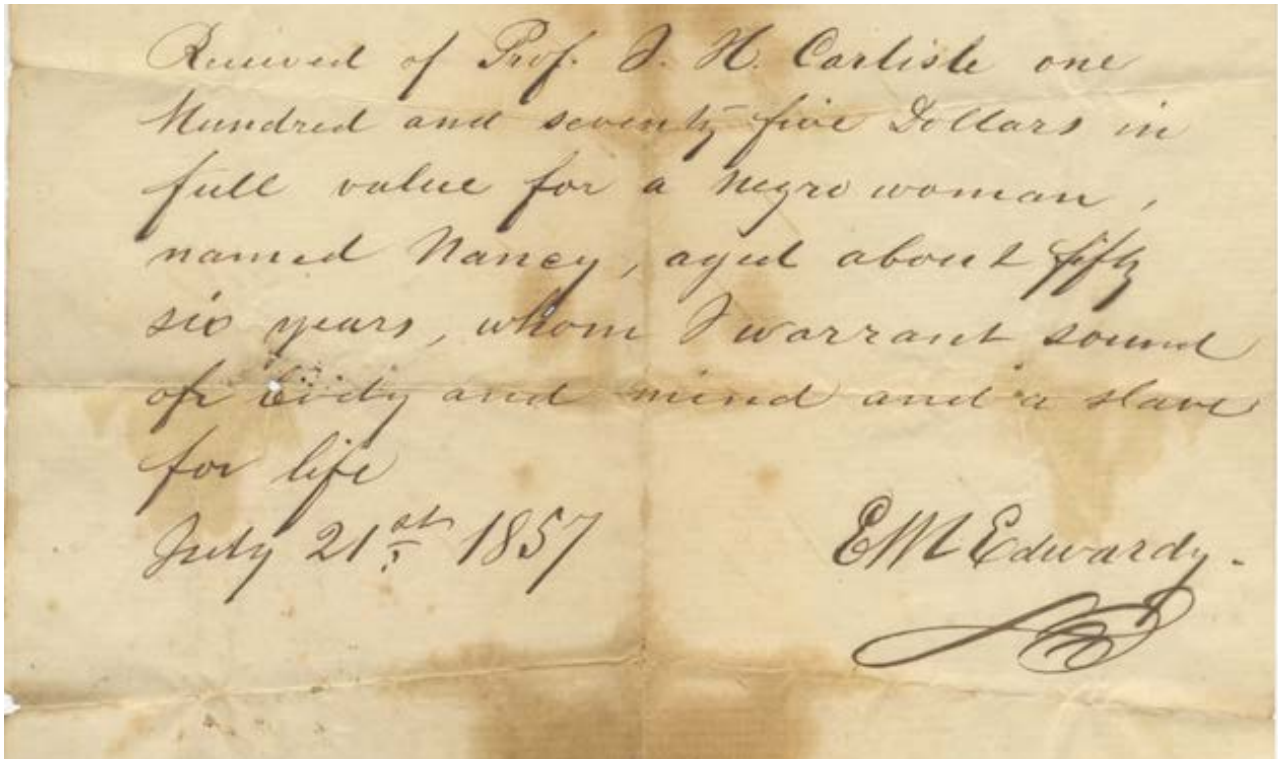 Received of Prof. J. H. Carlisle one
Hundred and seventy five Dollars in
full value for a negro woman,
named Nancy, aged about fifty
six years, whom I warrant sound
of body and mind and a slave
for life
July 21st 1857 E M Edwardy.